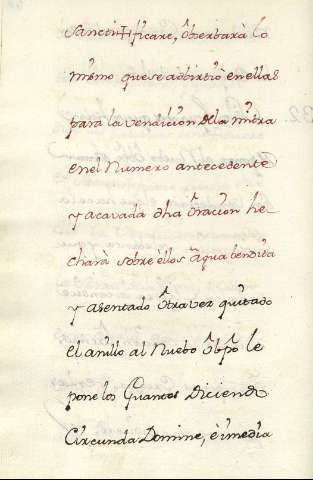 Sancti✠ficare, Observarà lo
mismo que se adbirtiò èn ellas
para la vendicion de la mitra
en el Numero antecedente
y acavada dha Oracion he-
charà sobre èllos Agua bendita
y asentado Otra vez quitado
el anillo al Nuebo Obpo le
pone los Guantes Diciendo
Circunda Domine, è imedia